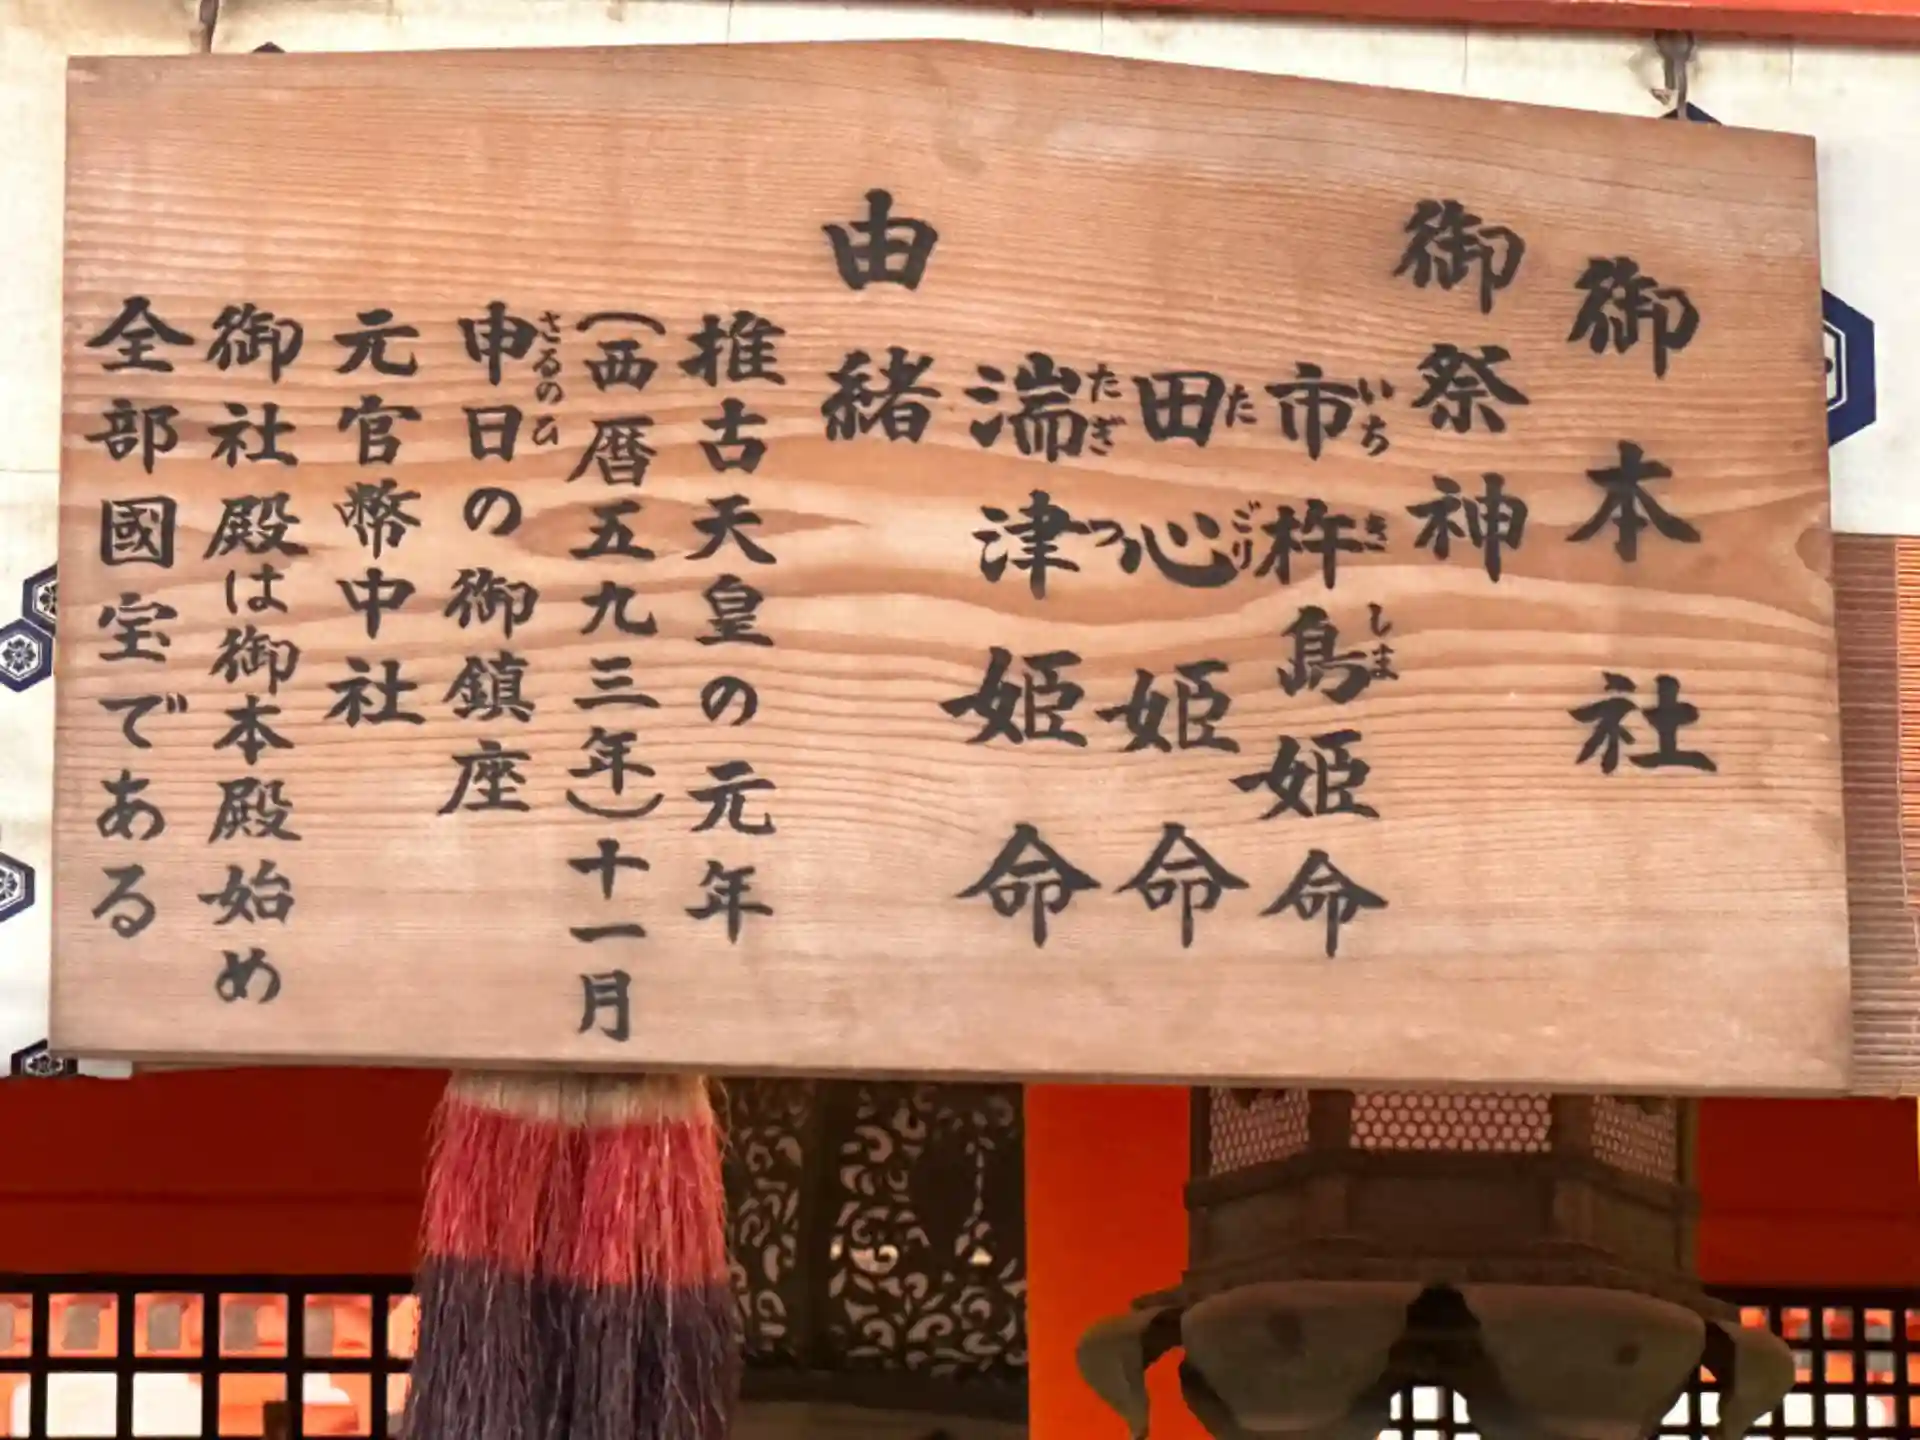 御本社
御祭神
市杵島姫命
いちきしま
田心姫命
たごり
湍津姫命
たぎつ
由緒
推古天皇の元年
(西暦五九三年)十一月
申日の御鎮座
さるのひ
元官幣中社
御社殿は御本殿始め
全部國宝である